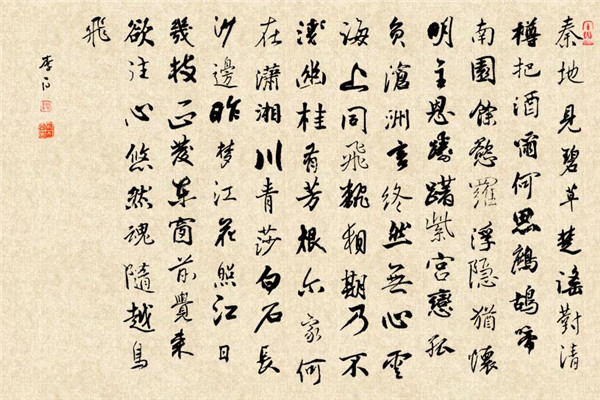 秦地見碧草楚謠對清
樽把酒爾何思鷓鴣啼
南園餘慾羅浮隱猶懷
明主恩躊躇紫宮戀孤
負滄洲言終然無心雲
海上同飛翻相期乃不
淺幽桂有芳根尔家何
在瀟湘川青莎白石長
沙邊昨夢江花照江日
幾枝正發東窗前覺來
欲往心悠然魂隨越鳥
飛
李白